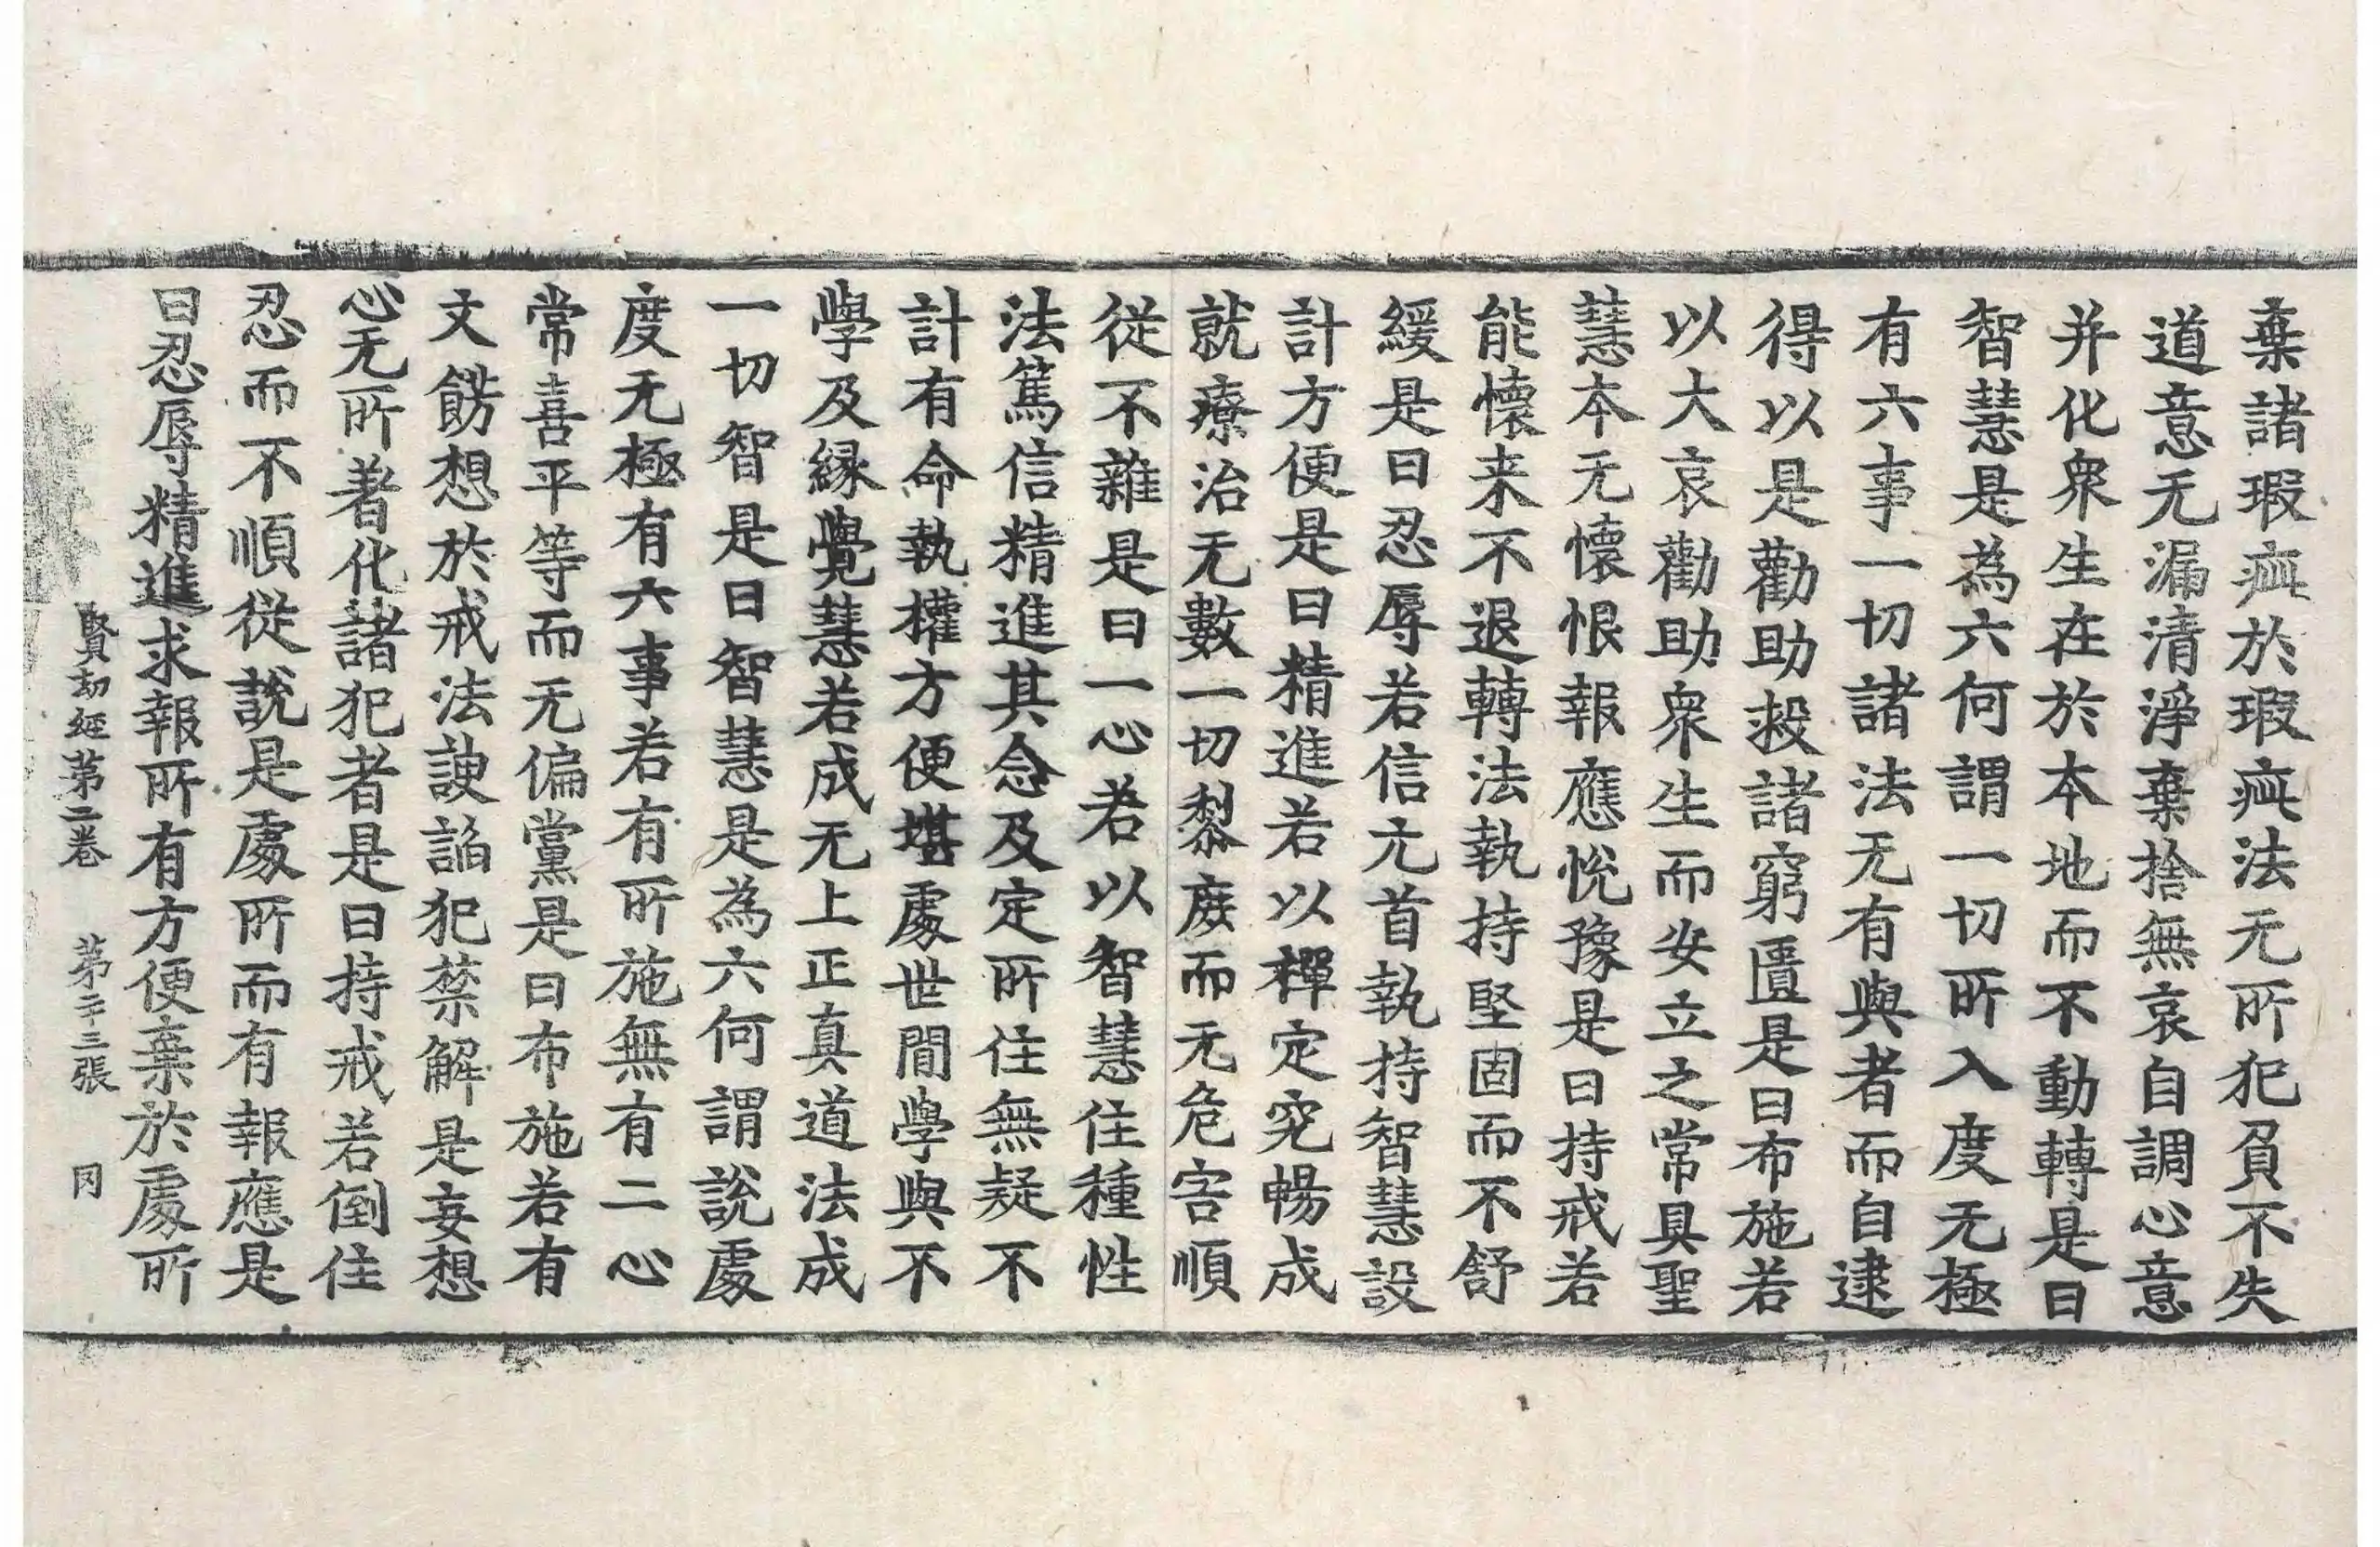 棄諸瑕疵於瑕疵法无所犯負不失
道意无漏清淨棄捨無哀自調心意
并化衆生在於本地而不動轉是曰
智慧是為六何謂一切所入度无極
有六事一切諸法无有與者而自逮
得以是勸助救諸窮匱是曰布施若
以大哀勸助衆生而安立之常具聖
慧本无懷恨報應悅豫是曰持戒若
能懷来不退轉法執持堅固而不舒
緩是曰忍辱若信元首執持智慧設
計方便是曰精進若以禪定究暢成
就療治无數一切黎庶而无危害順
從不雜是曰一心若以智慧住種性
法篤信精進其念及定所住無疑不
計有命執權方便堪處世間學與不
學及緣覺慧若成无上正真道法成
一切智是曰智慧是為六何謂說處
度无極有六事若有所施無有二心
常喜平等而无偏黨是曰布施若有
文餝想於戒法諛諂犯禁解是妄想
心无所著化諸犯者是曰持戒若倒住
忍而不順從說是處所而有報應是
曰忍辱精進求報所有方便棄於處所
賢劫經第二卷 第二十三張 冈